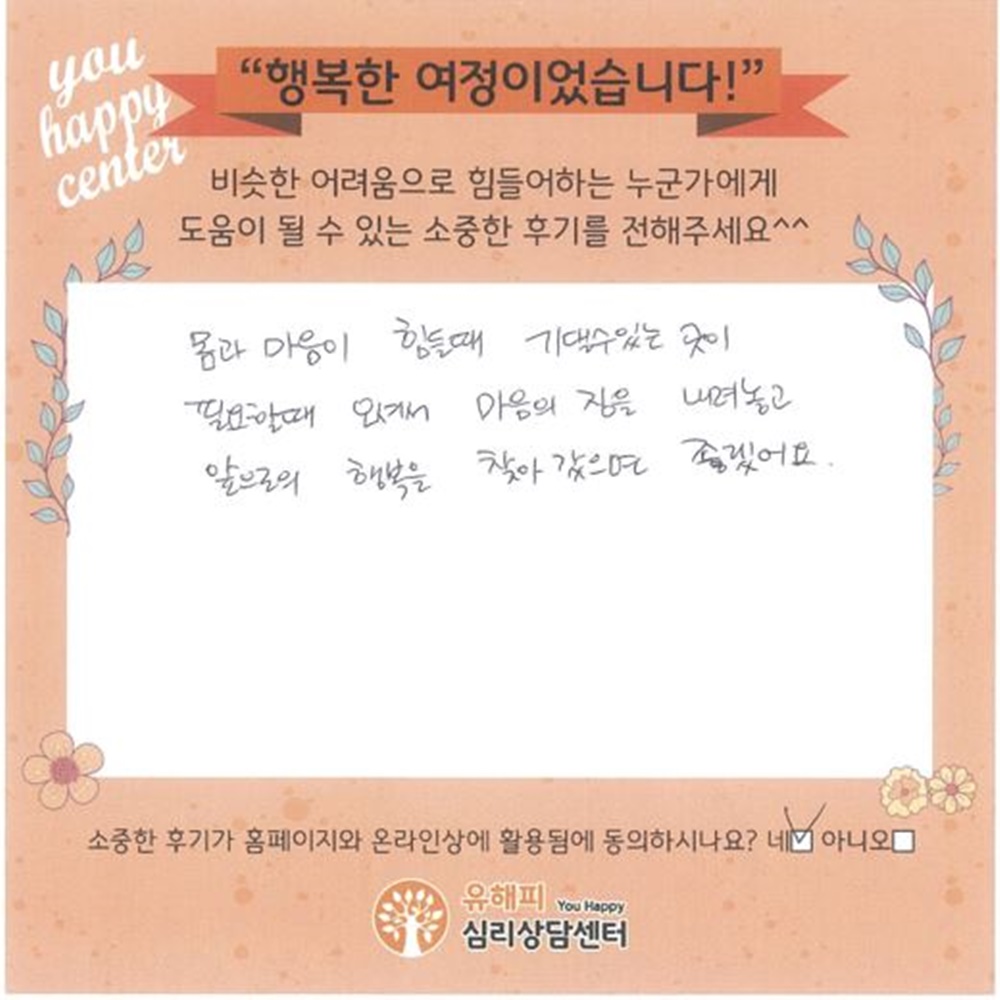 you
happy
center
“행복한 여정이었습니다!”
비슷한 어려움으로 힘들어하는 누군가에게
도움이 될 수 있는 소중한 후기를 전해주세요^^
몸과 마음이 힘들때 기댈수있는 곳이
필요할때 오셔서 마음의 짐을 내려놓고
앞으로의 행복을 찾아 갔으면 좋겠어요.
소중한 후기가 홈페이지와 온라인상에 활용됨에 동의하시나요? 네 아니오
유해피 You Happy
심리상담센터